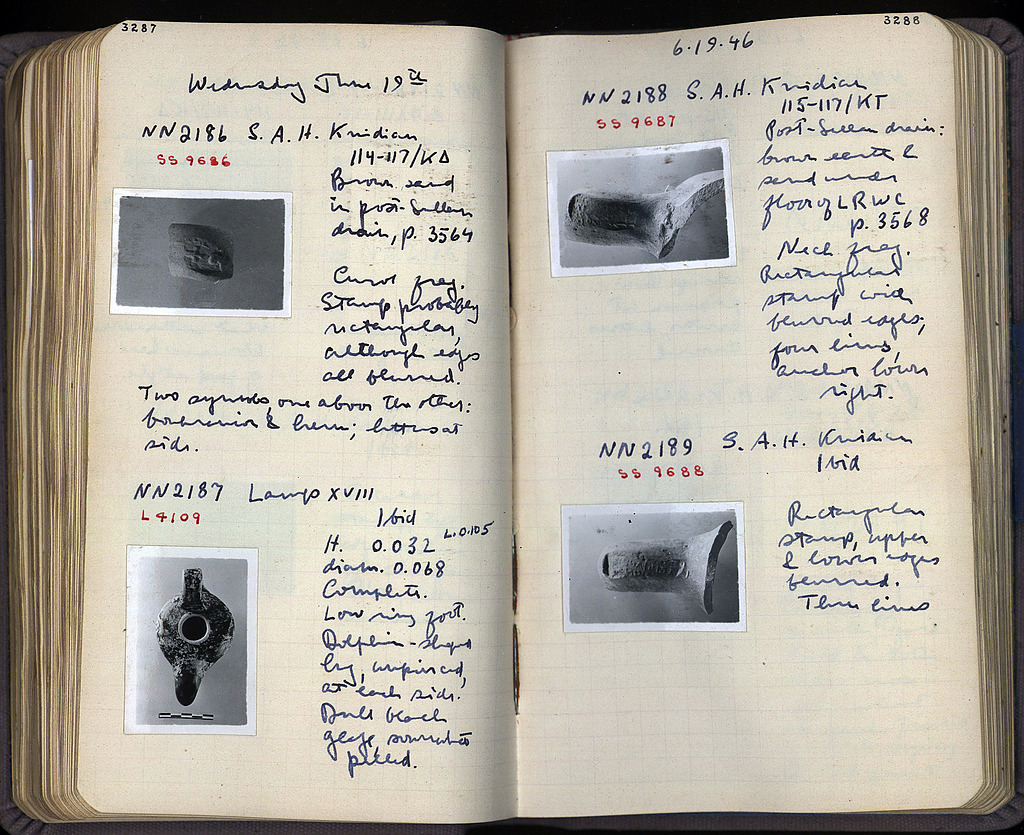 3287
Wednesday June 19th
NN2186 S.A.H. Knidian
SS 9686
114-117/ΚΔ
Brown sand
in post-Sullan
drain, p. 3564
Curved frag.
Stamp probably
rectangular,
although edges
all blurred.
Two symbols, one above the other:
bucranium & herm; letters at
side.
NN2187 Lamp XVIII
L 4109
Ibid
H. 0.032 L. 0.105
diam. 0.068
Complete.
Low ring foot.
Dolphin-shaped
lug, unpierced,
at each side.
Dull black
glaze, somewhat
peeled.
3288
6.19.46
NN2188 S.A.H. Knidian
SS 9687
115-117/ΚΓ
Post-Sullan drain:
brown earth &
sand under
floor of LRWC
p. 3568
Neck frag.
Rectangular
stamp with
blurred edges;
four lines,
anchor lower
right.
NN2189 S.A.H. Knidian
SS 9688
Ibid
Rectangular
stamp, upper
& lower edges
blurred.
Three lines